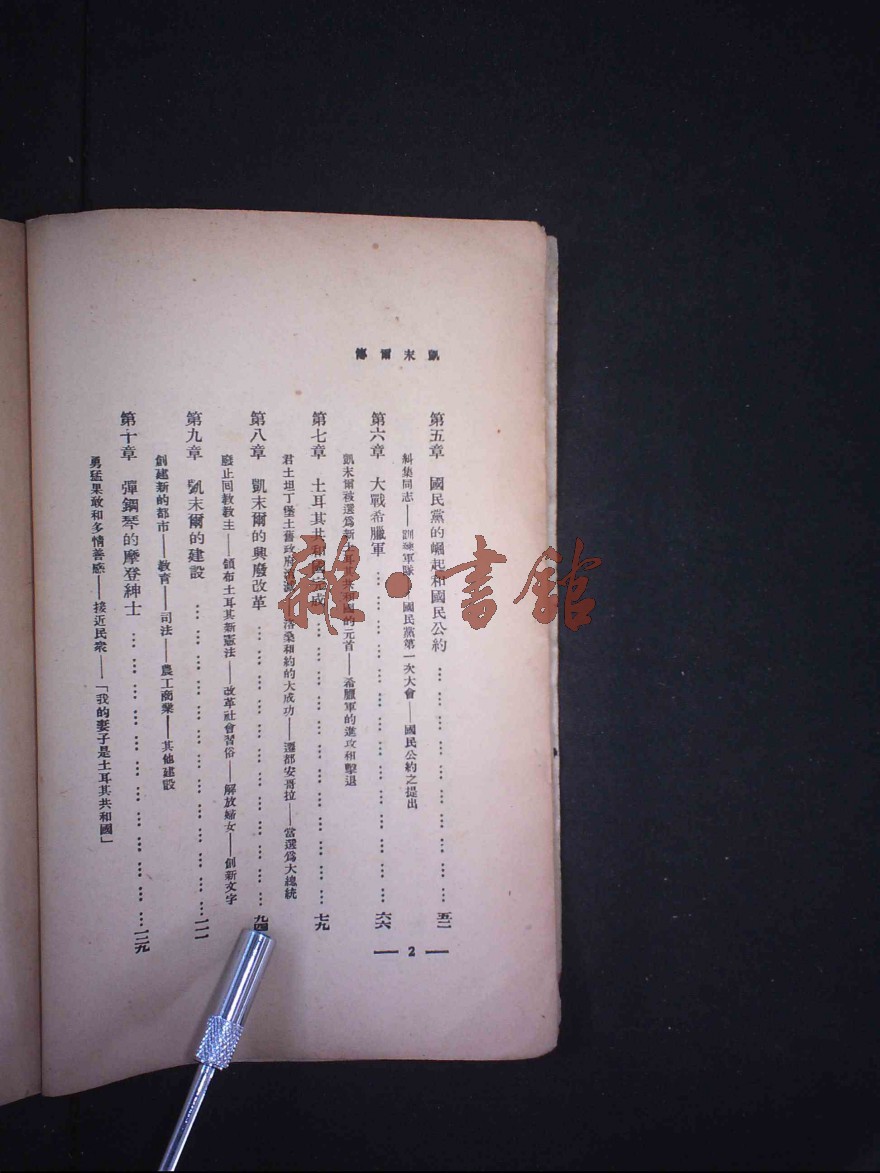 凱末爾傳
第五章 國民黨的崛起和國民公約……五二
糾集同志——訓練軍隊——國民黨第一次大會——國民公約之提出
第六章 大戰希臘軍……六六
凱末爾被選爲新土耳其共和國的元首——希臘軍的進攻和擊退
第七章 土耳其共和國完成……七九
君士坦丁堡土舊政府消滅——洛桑和約的大成功——遷都安哥拉——當選爲大總統
第八章 凱末爾的興廢改革……九四
廢止回教教主——頒布土耳其新憲法——改革社會習俗——解放婦女——創新文字
第九章 凱末爾的建設……一一一
創建新的都市——教育——司法——農工商業——其他建設
第十章 彈鋼琴的摩登紳士……一二九
勇猛果敢和多情善感——接近民衆——「我的妻子是土耳其共和國」
— 2 —
雜·書館